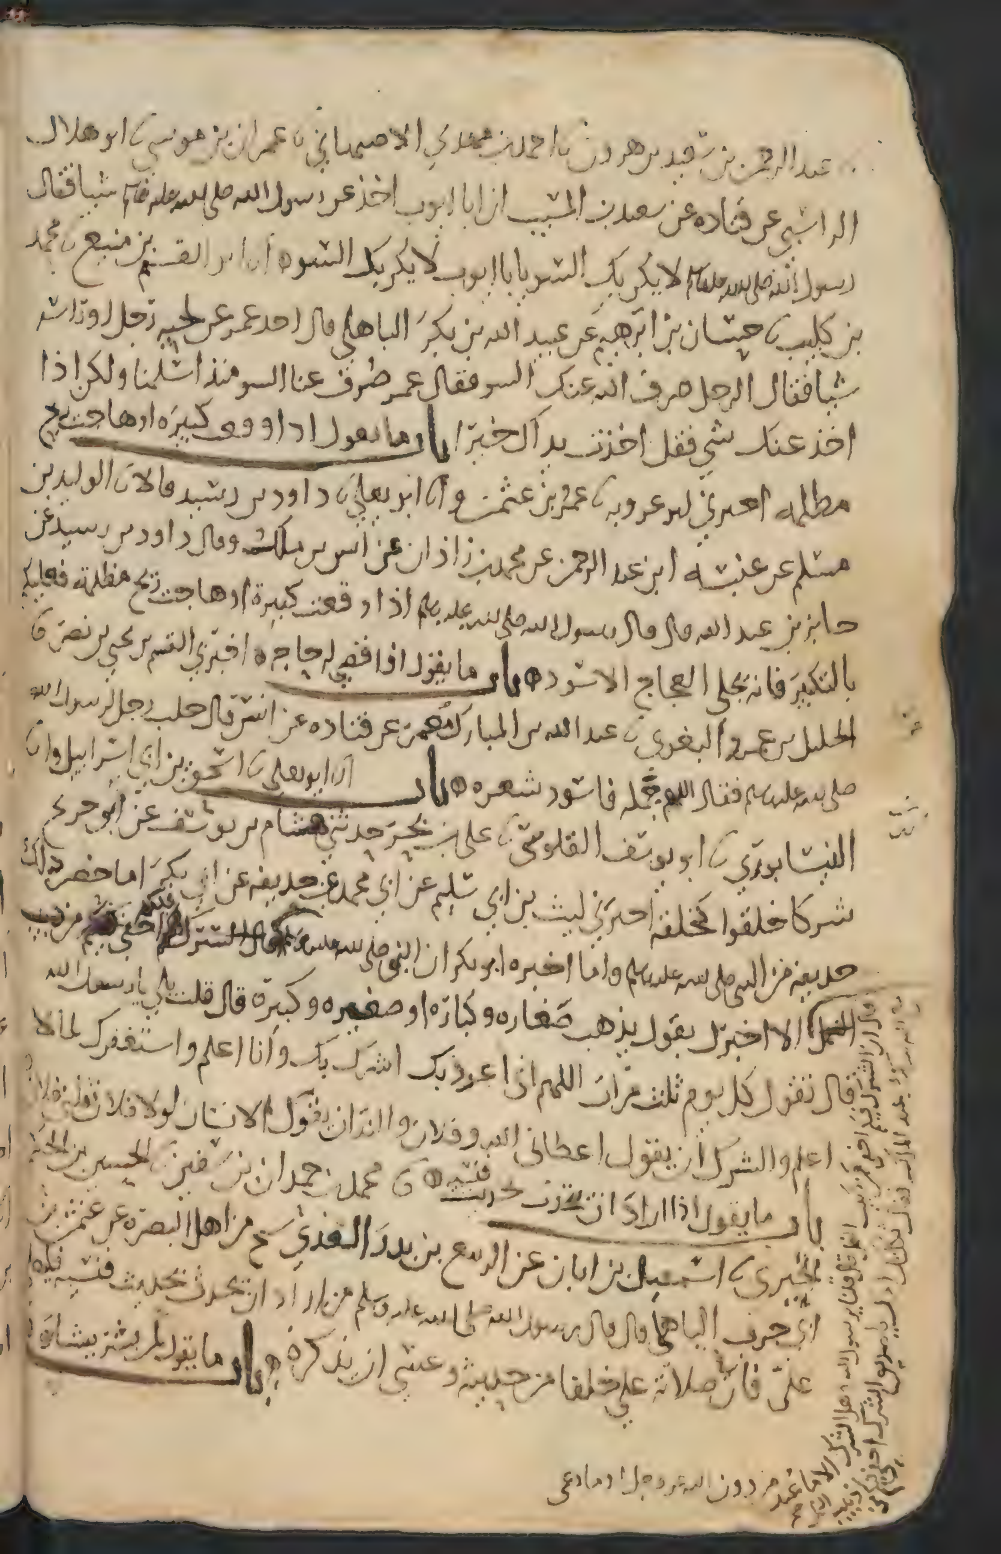 عبد الرحمن بن سعيد بن هرون نا احمد بن مهدي الاصبهاني نا عمران بن موسى نا ابو هلال
الراسبي عن قتاده عن سعيد بن المسيب ان ابا ايوب اخذ عن رسول الله صلى الله عليه وسلم شيئا فقال
رسول الله صلى الله عليه وسلم لا يكن بك السو يا با ايوب لا يكن بك السوه ابو القسم بن منيع نا محمد
بن كليب نا حسان بن ابرهيم عن عبيد الله بن بكر الباهلي قال اخذ عمر عن لحيه رجل او راسه
شيا فقال الرجل صرف الله عنك السو فقال عمر صرف عنا السو منذ اسلمنا ولكن اذا
اخذ عنك شي فقل اخذت يداك خيرا باب ما يقول اذا وقعت كبيره او هاجت ريح
مظلمه اخبرني ابو عروبه نا عمرو بن عثمن وانا ابو يعلى نا داود بن رشيد قالا نا الوليد بن
مسلم عن عنبسه ابن عبد الرحمن عن محمد بن زاذان عن انس بن ملك وقال داود بن رشيد عن
جابر بن عبد الله قال قال رسول الله صلى الله عليه وسلم اذا وقعت كبيرة او هاجت ريح مظلمة فعليكم
بالتكبير فانه يجلي العجاج الاسود باب ما يقول اذا قضى له حاجه اخبرني القسم بن يحيى بن نصر نا
الخليل بن عمرو البغوي نا عبد الله بن المبارك معمر عن قتاده عن انس قال حلب رجل لرسول الله
صلى الله عليه وسلم فقال اللهم جمله فاسود شعره باب انا ابو يعلى نا اسحق بن ابي اسرايل وانا
النيسابوري نا ابو يوسف القلوسي نا علي بن بحر حدثني هشام بن يوسف عن ابن جريج
شركا خلقوا كخلقه اخبرني ليث بن ابي سليم عن ابي محمد عن حذيفه عن ابي بكر اما حضر ذلك
حذيفه من النبي صلى الله عليه وسلم واما اخبره ابو بكر ان النبي صلى الله عليه وسلم قال الشرك فيكم اخفى من دبيب
النمل الا اخبرك بقول يذهب صغاره وكباره او صغيره وكبيره قال قلت بلى يا رسول الله
قال تقول كل يوم ثلث مرات اللهم اني اعوذ بك اشرك بك وانا اعلم واستغفرك لما لا
اعلم والشرك ان يقول اعطاني الله وفلان والند ان يقول الانسان لولا فلان قتلني فلان
باب ما يقول اذا اراد ان يحدث بحديث فنسيه نا محمد بن حمدان بن سفين نا الحسين بن الحكم
الحبري نا اسمعيل بن ابان عن الربيع بن بدر السعدي شيخ من اهل البصره عن عثمن بن
ابي حرب الباهلي قال قال رسول الله صلى الله عليه وسلم من اراد ان يحدث بحديث فنسيه فليصل
علي فان صلاته علي خلفا من حديثه وعسى ان يذكره باب ما يقول لمن بشر ببشاره
من دون الله عز وجل او ما دعي